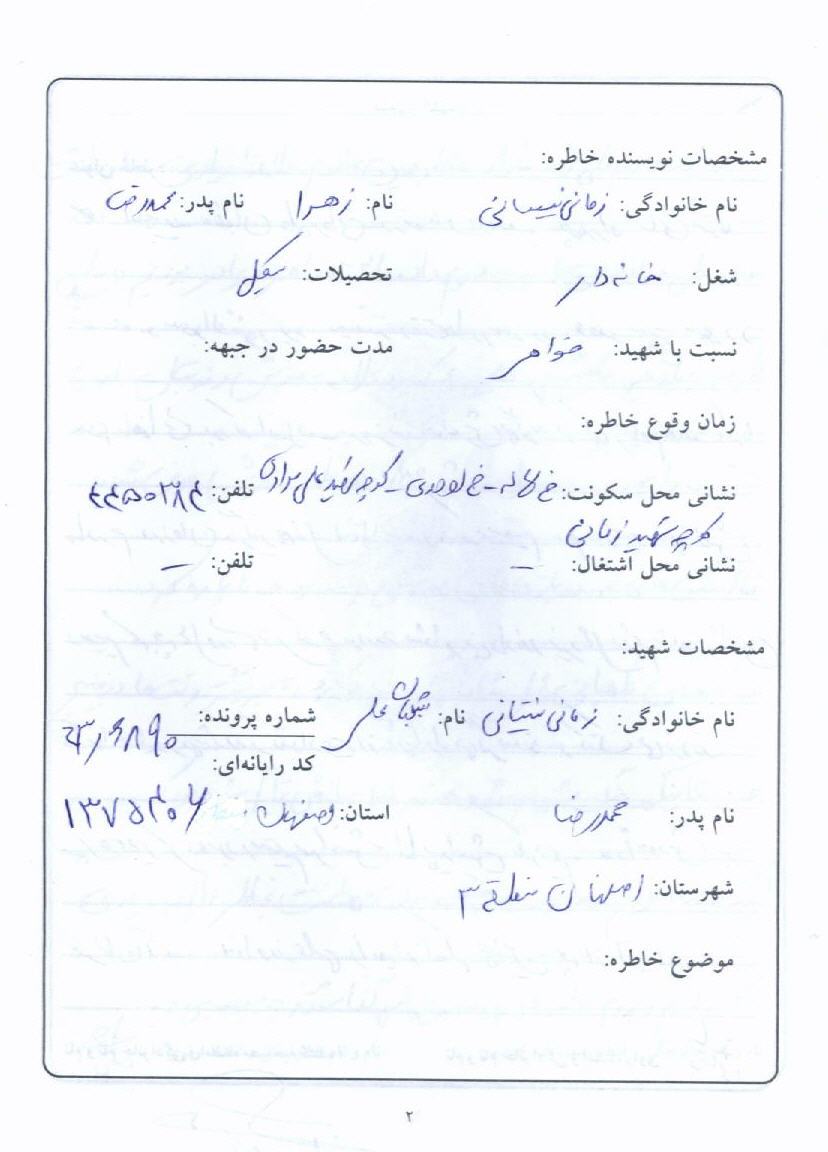 مشخصات نویسنده خاطره:
نام خانوادگی: زمانی نیسیانی نام: زهرا نام پدر: محمدرضا
شغل: خانه دار تحصیلات: سیکل
نسبت با شهید: خواهر مدت حضور در جبهه:
زمان وقوع خاطره:
نشانی محل سکونت: خ لاله - خ - کوچه شهید علی مرادی تلفن:
کوچه شهید زمانی
نشانی محل اشتغال: - تلفن: -
مشخصات شهید:
نام خانوادگی: زمانی نیسیانی نام: علی شماره پرونده:
کد رایانه‌ای:
نام پدر: محمدرضا استان: اصفهان
شهرستان: اصفهان منطقه ۳
موضوع خاطره:
۲